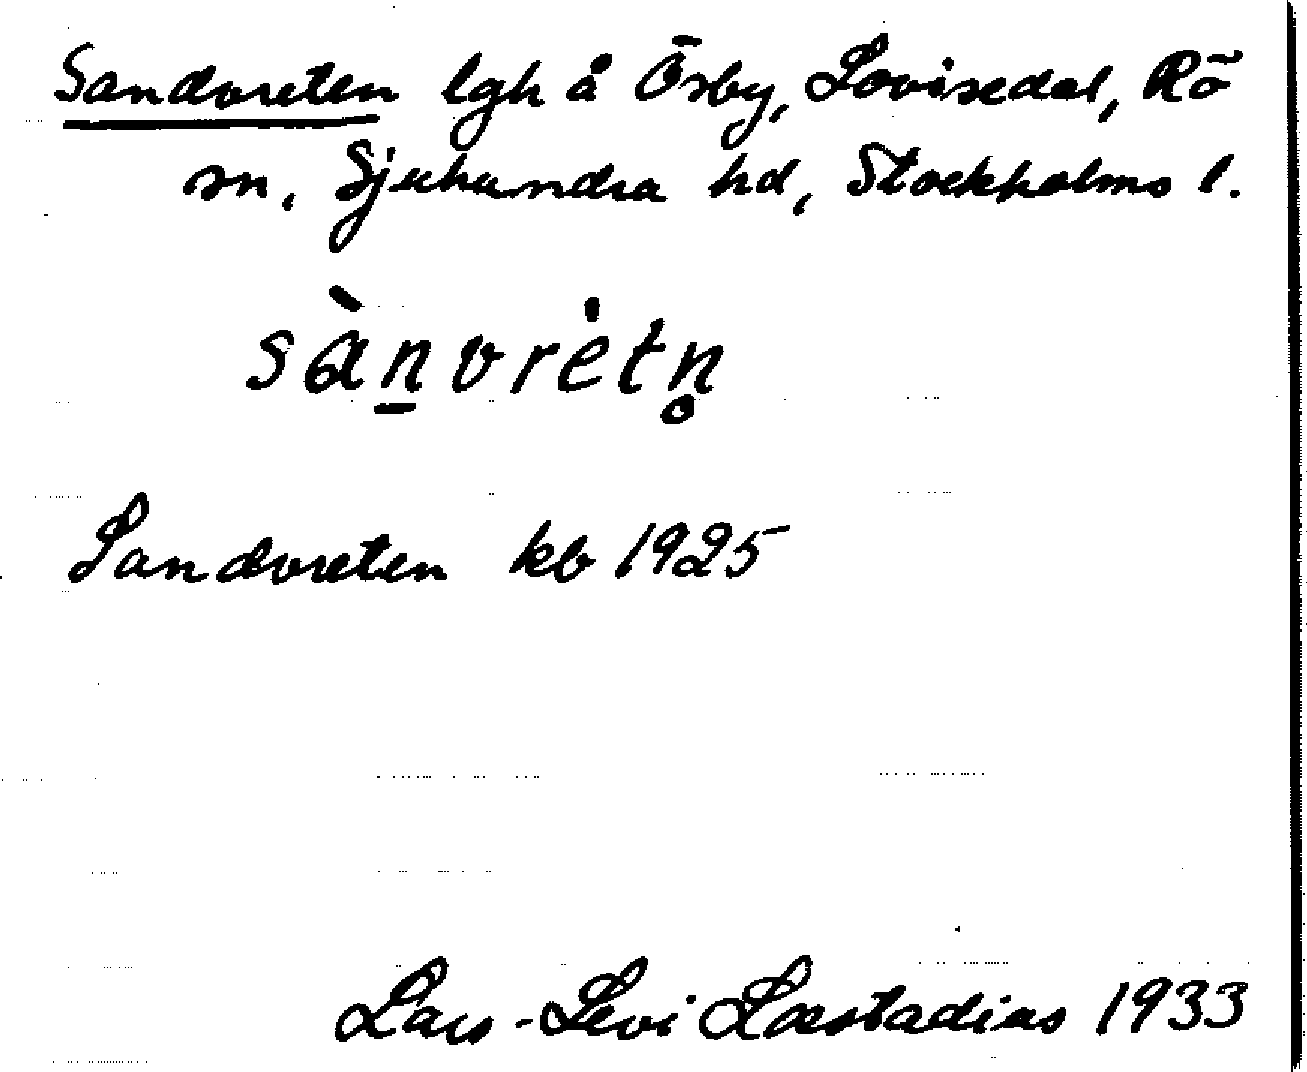 Sandvreten lgh å Ösby, Lovisedal, Rö
sn, Sjuhundra hd, Stockholms l.
sàn̲vrètn̥
Sandvreten kb 1925
Lars-Levi Læstadius 1933